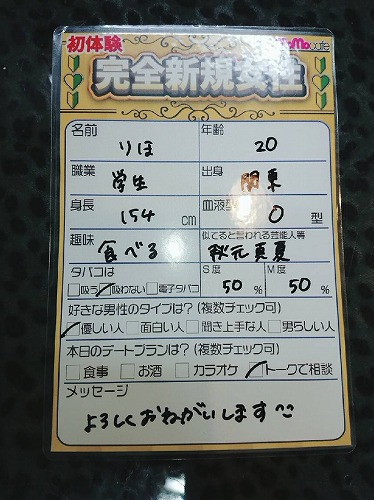 初体験 MoMo cafe
完全新規女性
名前 りほ 年齢 20
職業 学生 出身 関東
身長 154 cm 血液型 O 型
趣味 食べる 似てると言われる芸能人等 秋元真夏
タバコは S度 M度
□吸う □吸わない □電子タバコ 50 % 50 %
好きな男性のタイプは?(複数チェック可)
□優しい人 □面白い人 □聞き上手な人 □男らしい人
本日のデートプランは?(複数チェック可)
□食事 □お酒 □カラオケ □トークで相談
メッセージ
よろしくおねがいします